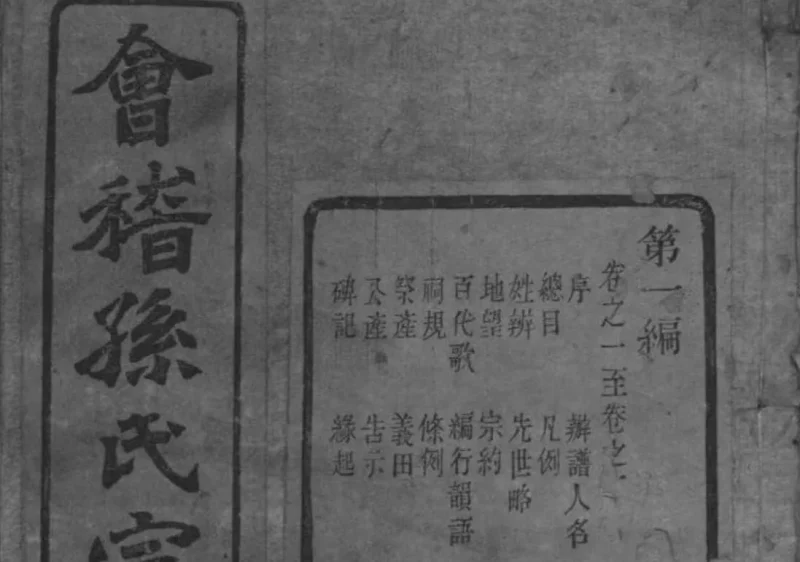 會稽孫氏宗
第一編
卷之一至卷之
序 辦譜人名
總目 凡例
姓辨 先世略
地望 宗約
百代歌 編行韻語
祠規 條例
祭產 義田
公產 告示
碑記 緣起